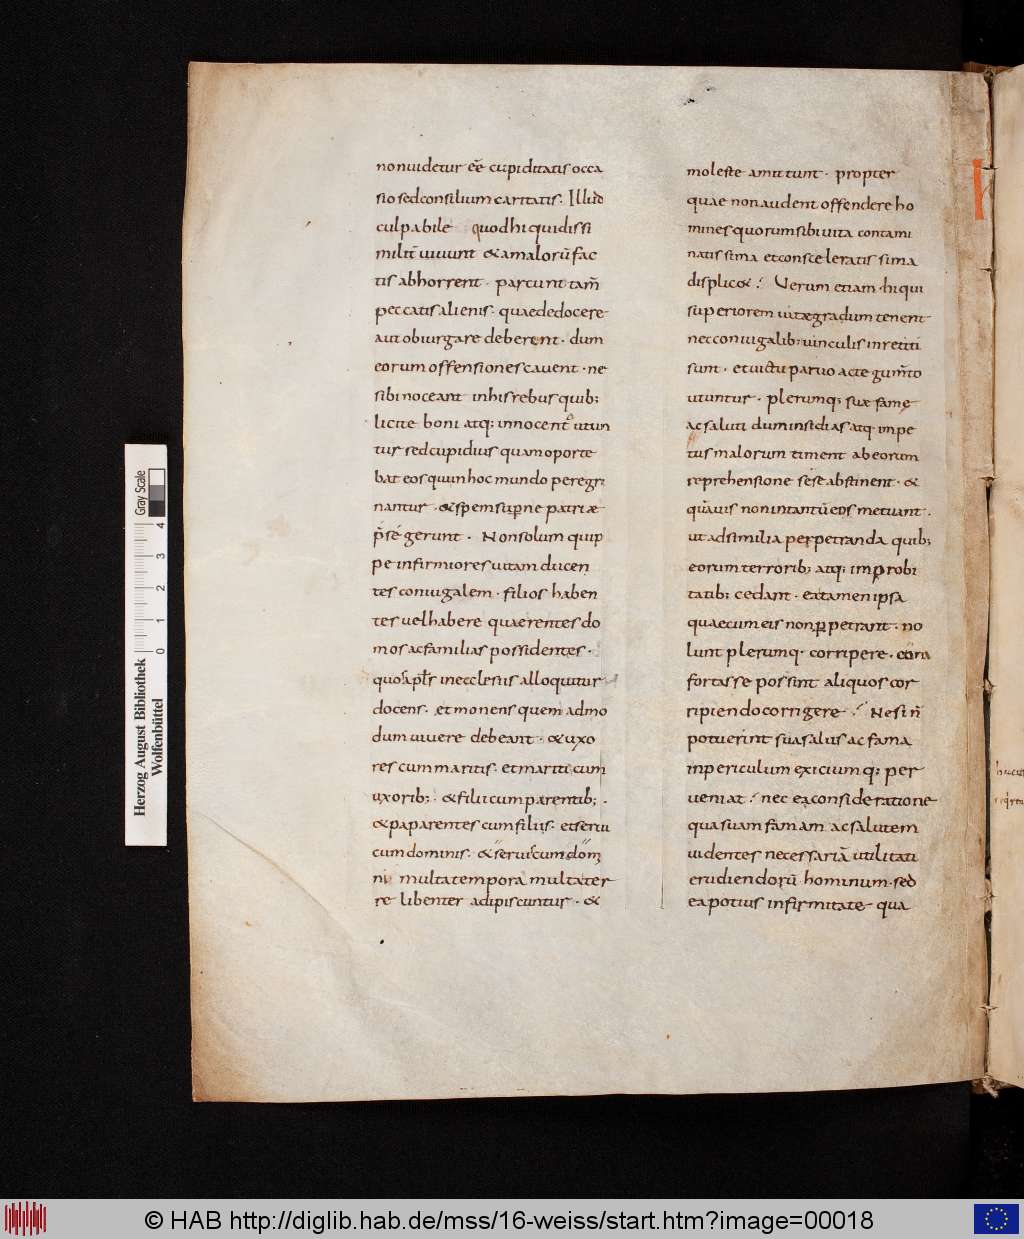 non uidetur eē cupiditatis occa
sio sed consilium caritatis. Illud
culpabile quod hi qui dissi
milit̄ uiuunt & a malorū fac
tis abhorrent · parcunt tam̄
peccatis alienis· quae dedocere
aut obiurgare deberent· dum
eorum offensiones cauent · ne
sibi noceant in his rebus quib;
licite boni atq; innocent utun
tur sed cupidius quam oporte
bat eos qui in hoc mundo peregri
nantur · & spem supne patriæ
p̄ sé gerunt · Non solum quip
pe infirmiores uitam ducen
tes coniugalem · filios haben
tes uel habere quaerentes do
mos ac familias possidentes ·
quos apłs in ecclesiis alloquitur
docens · et monens quem admo
dum uiuere debeant · & uxo
res cum maritis · et mariti cum
uxorib; · & filii cum parentib; ·
& paparentes cum filiis · et serui
cum dominis · & serui cum dom
ni multa tempora multa ter
re libenter adipiscuntur · &
moleste amittunt · propter
quae non audent offendere ho
mines quorum sibi uita contami
natissima et consceleratissima
displic& ; Uerum etiam · hi qui
superiorem uitæ gradum tenent
nec coniugalib; uinculis inretiti
sunt · et uictu paruo ac tegum̄to
utuntur · plerumq; suæ fame
ac saluti dum insidias atq; impe
tus malorum timent ab eorum
reprehensione sese abstinent · &
quāuis non in tantū eos metuant ·
ut ad similia perpetranda quib;
eorum terrorib; atq; improbi
tatib; cedant · ea tamen ipsa
quaecum eis non ppetrant · no
lunt plerumq· corripere · cū
fortasse possint aliquos cor
ripiendo corrigere ; Ne si ñ
potuerint sua salus ac fama
in periculum exiciumq; per
ueniat ; nec ea consideratione
qua suam famam ac salutem
uidentes necessariā utilitati
erudiendorū hominum · sed
ea potius infirmitate qua
Herzog August Bibliothek
Wolfenbüttel
0 1 2 3 4
Gray Scale
© HAB http://diglib.hab.de/mss/16-weiss/start.htm?image=00018